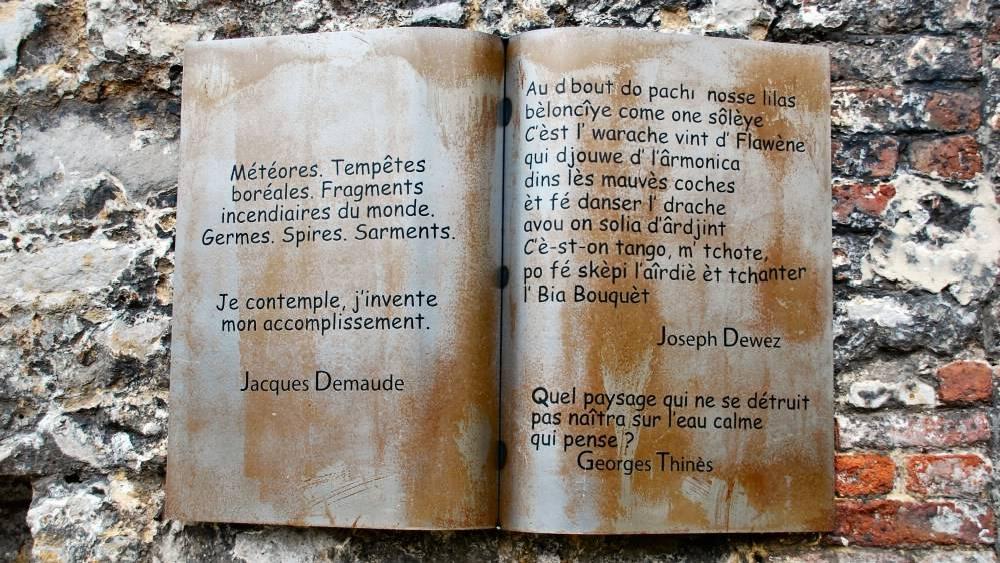 Météores. Tempêtes
boréales. Fragments
incendiaires du monde.
Germes. Spires. Sarments.
Je contemple, j'invente
mon accomplissement.
Jacques Demaude
Au d'bout do pachi nosse lilas
bèloncîye come one sôlêye
C'èst l' warache vint d' Flawène
qui djouwe d' l'ârmonica
dins lès mauvès coches
èt fé danser l' drache
avou on solia d'ârdjint
C'è-st-on tango, m' tchote,
po fé skèpi l'aîrdiè èt tchanter
l' Bia Bouquèt
Joseph Dewez
Quel paysage qui ne se détruit
pas naîtra sur l'eau calme
qui pense ?
Georges Thinès